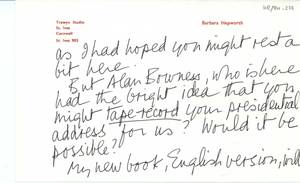 Trewyn Studio
St. Ives
Cornwall
Barbara Hepworth
as I had hoped you might rest a
bit here.
But Alan Bowness, who is here
had the bright idea that you
might tape-record your presidential
address for us? Would it be
possible?
My new book, English version, will